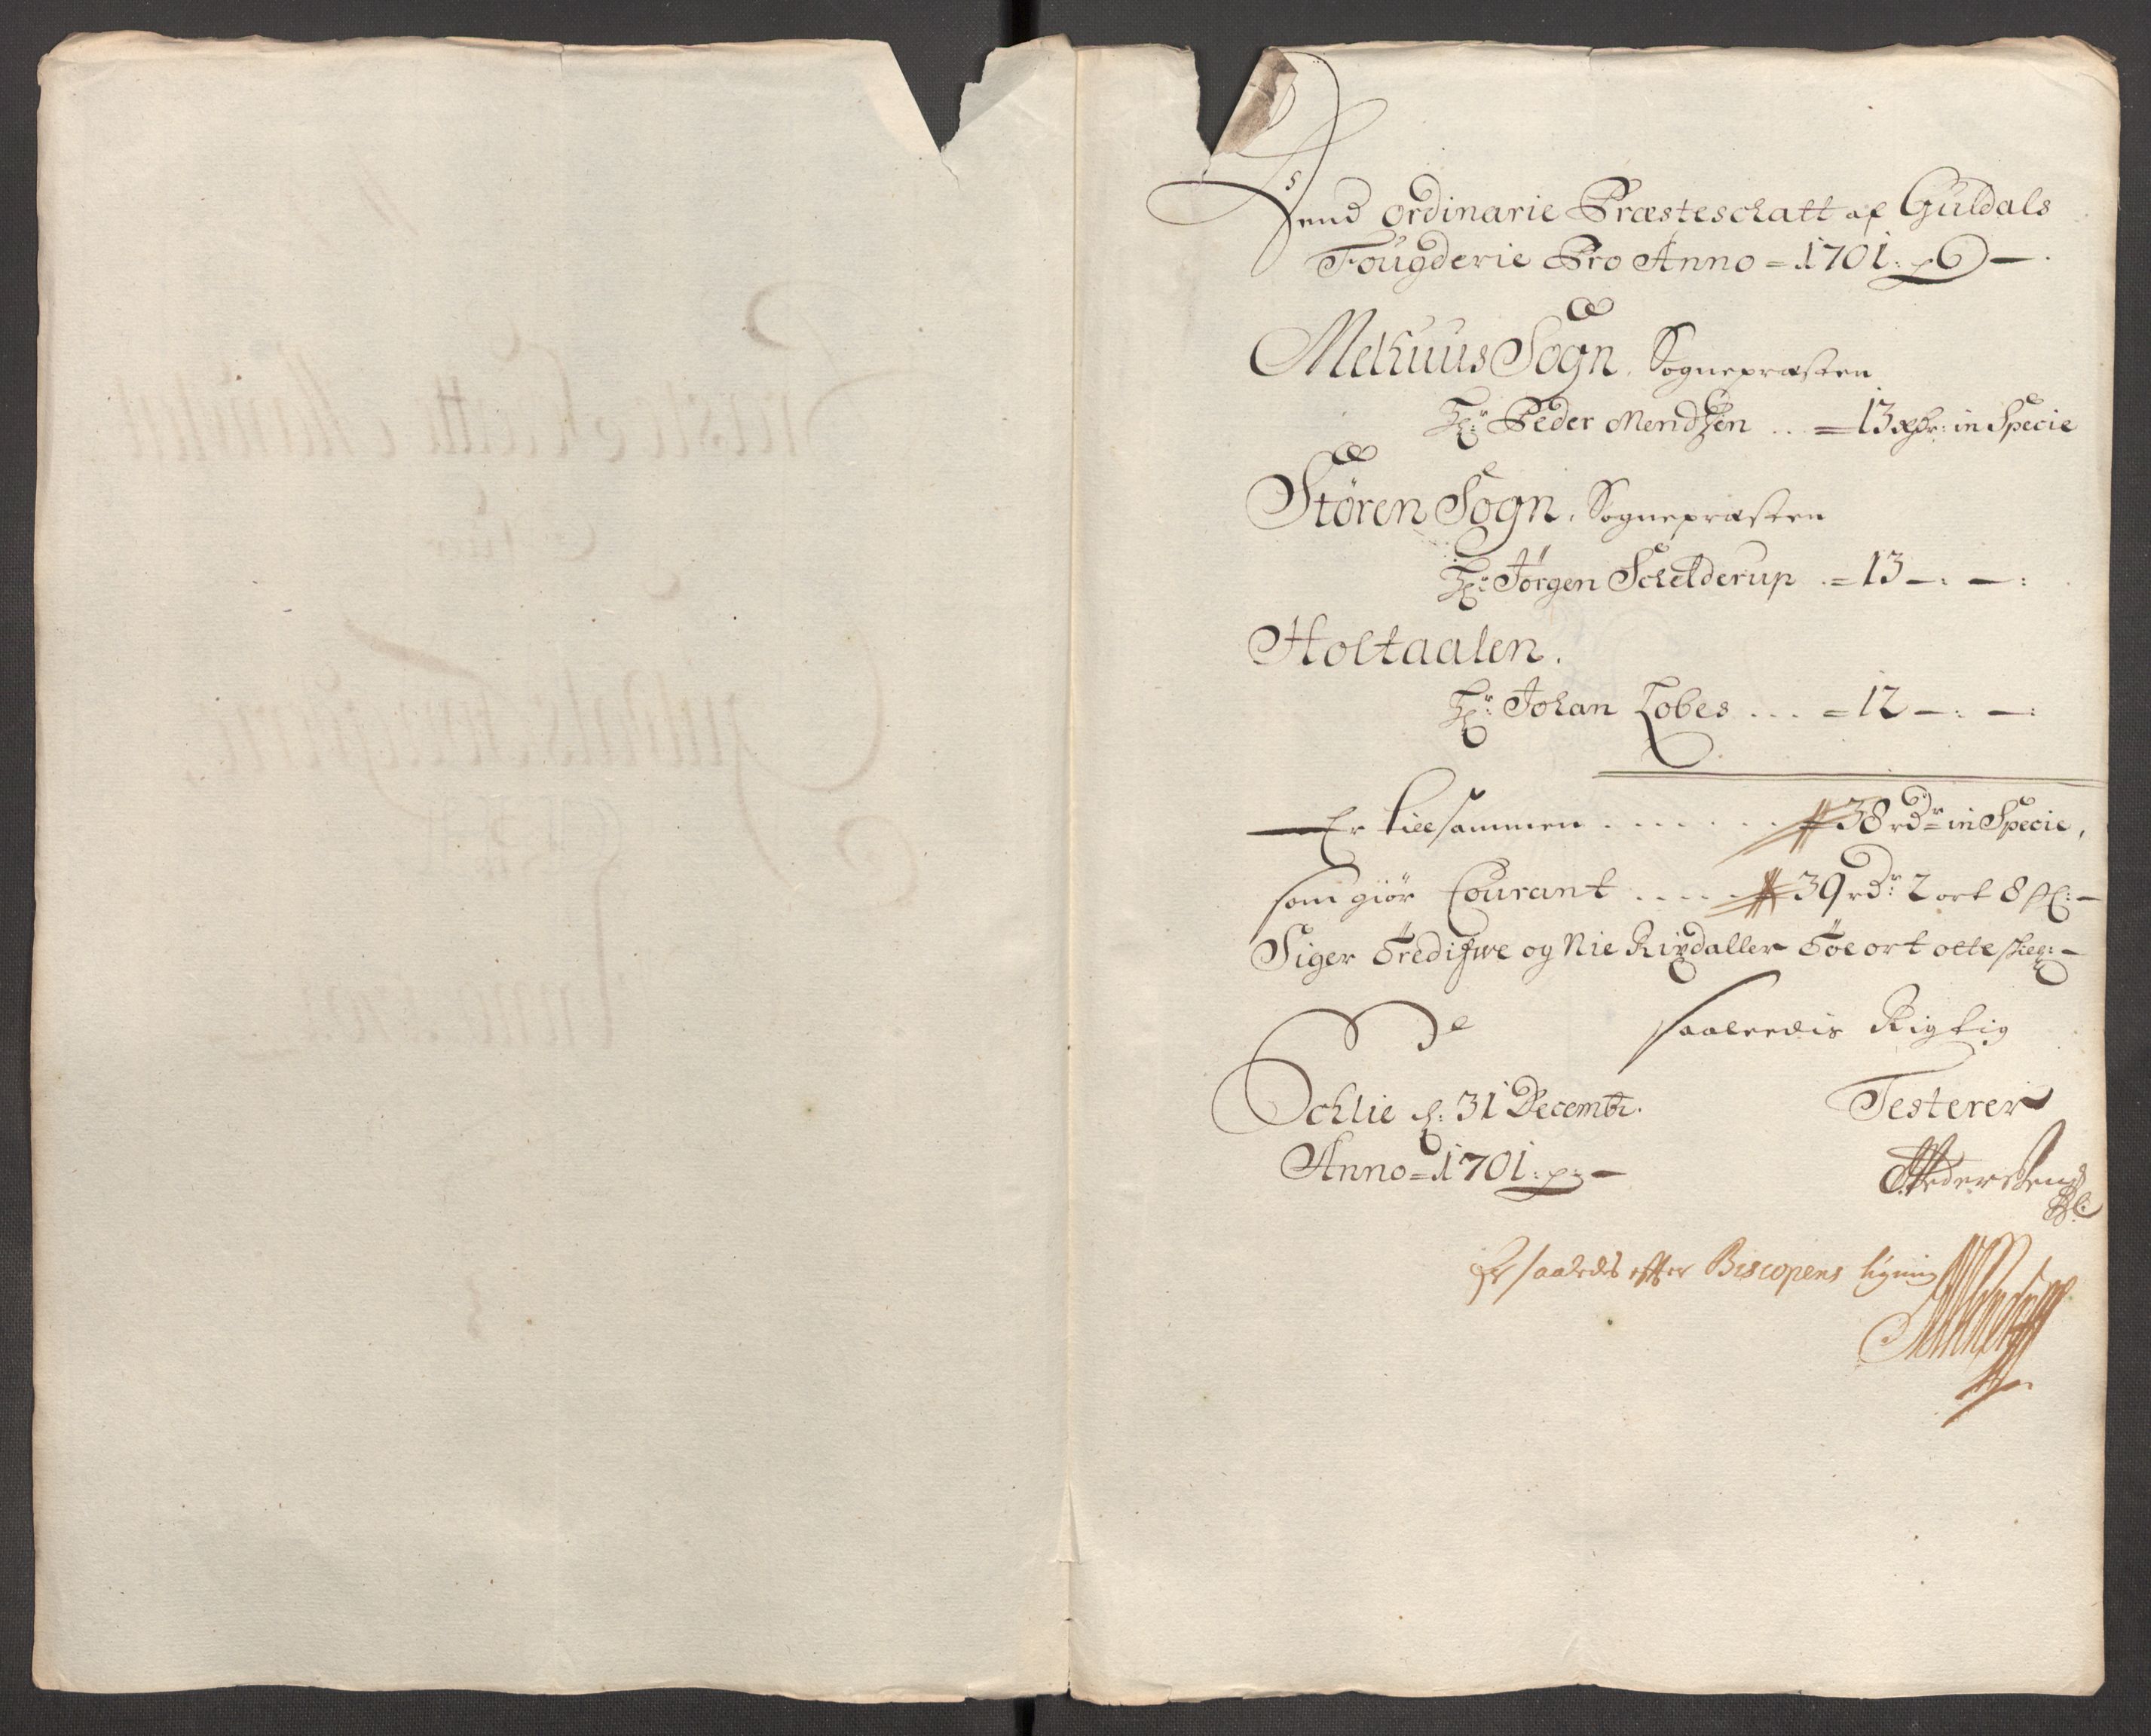 Dend ordinarie Præsteschatt af Guldals
Fougderie Pro Anno = 1701:
Melhuus Sogn. Sognepræsten
Hr: Peder Mendtzen .. = 13 rdr: in Specie
Stören Sogn. Sognepræsten
Hr: Jörgen Schelderup . = 13 —. —:
Holtaalen.
Hr: Johan Lobes ... = 12 —. —:
Er tillsammen . . . . . . . 38 rdr in Specie,
som giör Courant . . . . . 39 rdr: 2 ort 8 sk: —
Siger Tredifwe og Nie Rixdaller Toe ort otte skill: —
saaleedis Rigtig
Schlie d: 31 Decembr. Testerer
Anno = 1701:
Er saaledis efter Biscopens ligning